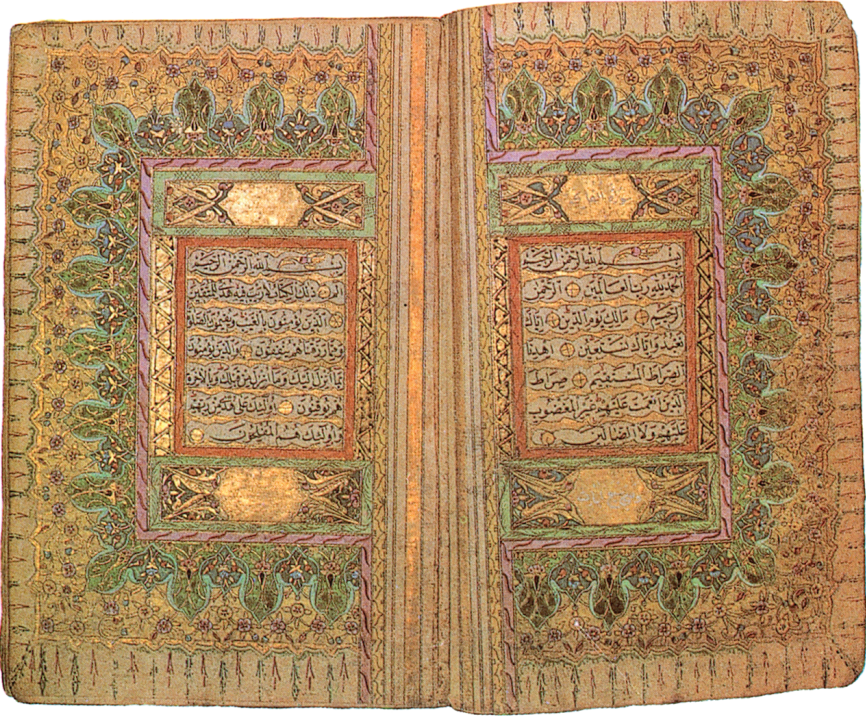 بسم الله الرحمن الرحيم
الحمد لله رب العالمين الرحمن
الرحيم مالك يوم الدين اياك
نعبد واياك نستعين اهدنا
الصراط المستقيم صراط
الذين انعمت عليهم غير المغضوب
عليهم ولا الضالين
بسم الله الرحمن الرحيم
الم ذلك الكتاب لا ريب فيه هدى للمتقين
الذين يؤمنون بالغيب ويقيمون الصلوة
ومما رزقناهم ينفقون والذين يؤمنون
بما انزل اليك وما انزل من قبلك وبالآخرة
هم يوقنون اولئك على هدى من ربهم
واولئك هم المفلحون